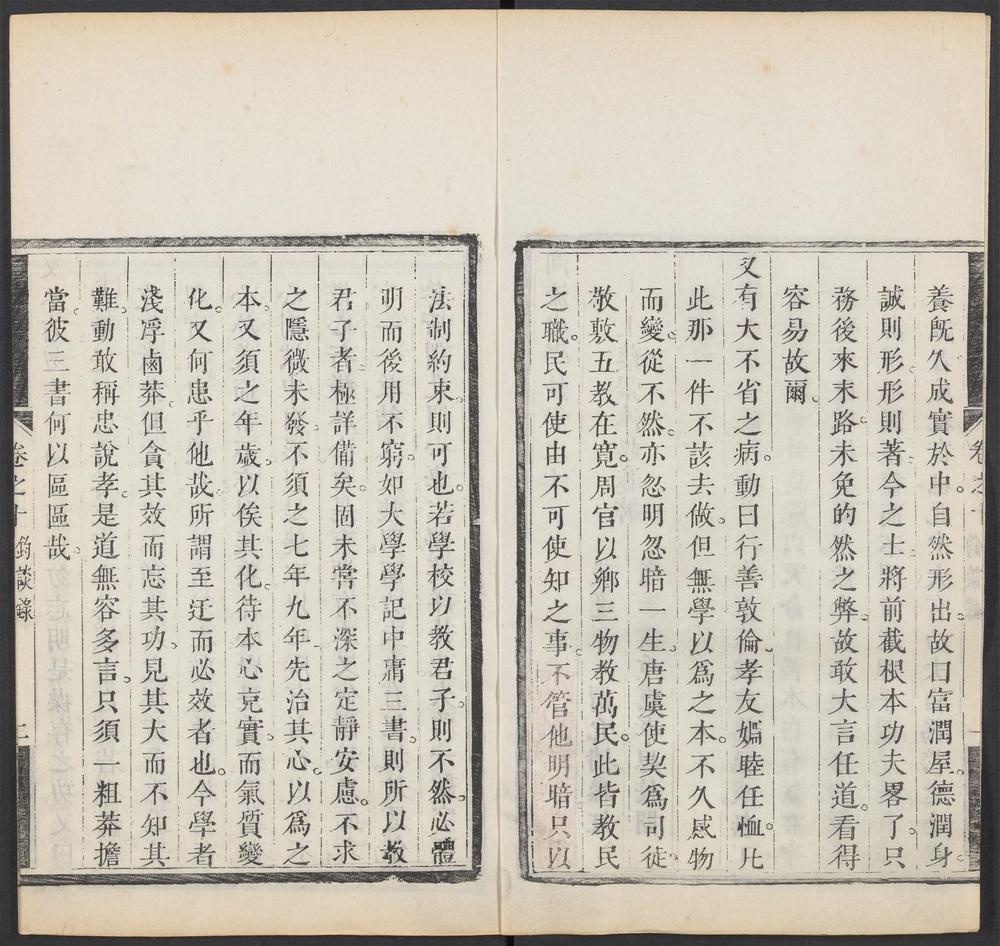 養旣久成實於中。自然形出。故曰富潤屋。德潤身。
誠則形。形則著。今之士。將前截根本功夫畧了。只
務後來末路。未免的然之弊。故敢大言任道。看得
容易故爾。
又有大不省之病。動曰行善敦倫。孝友婣睦任恤。比
此那一件不該去做。但無學以爲之本。不久感物
而變。從不然。亦忽明忽暗一生。唐虞使契爲司徒。
敬敷五教在寛。周官以鄉三物教萬民。此皆教民
之職。民可使由不可使知之事。不管他明暗。只以
法制約束。則可也。若學校以教君子。則不然。必體
明而後用不窮。如大學學記中庸三書。則所以教
君子者。極詳備矣。固未嘗不深之定靜安慮。不求
之隱微未發。不須之七年九年。先治其心。以爲之
本。又須之年歲。以俟其化。待本心充實。而氣質變
化。又何患乎他哉。所謂至迂而必效者也。今學者
淺浮鹵莽。但貪其效而忘其功。見其大而不知其
難。動敢稱忠說孝。是道無容多言。只須一粗莽擔
當。彼三書何以區區哉。
卷之十 錄